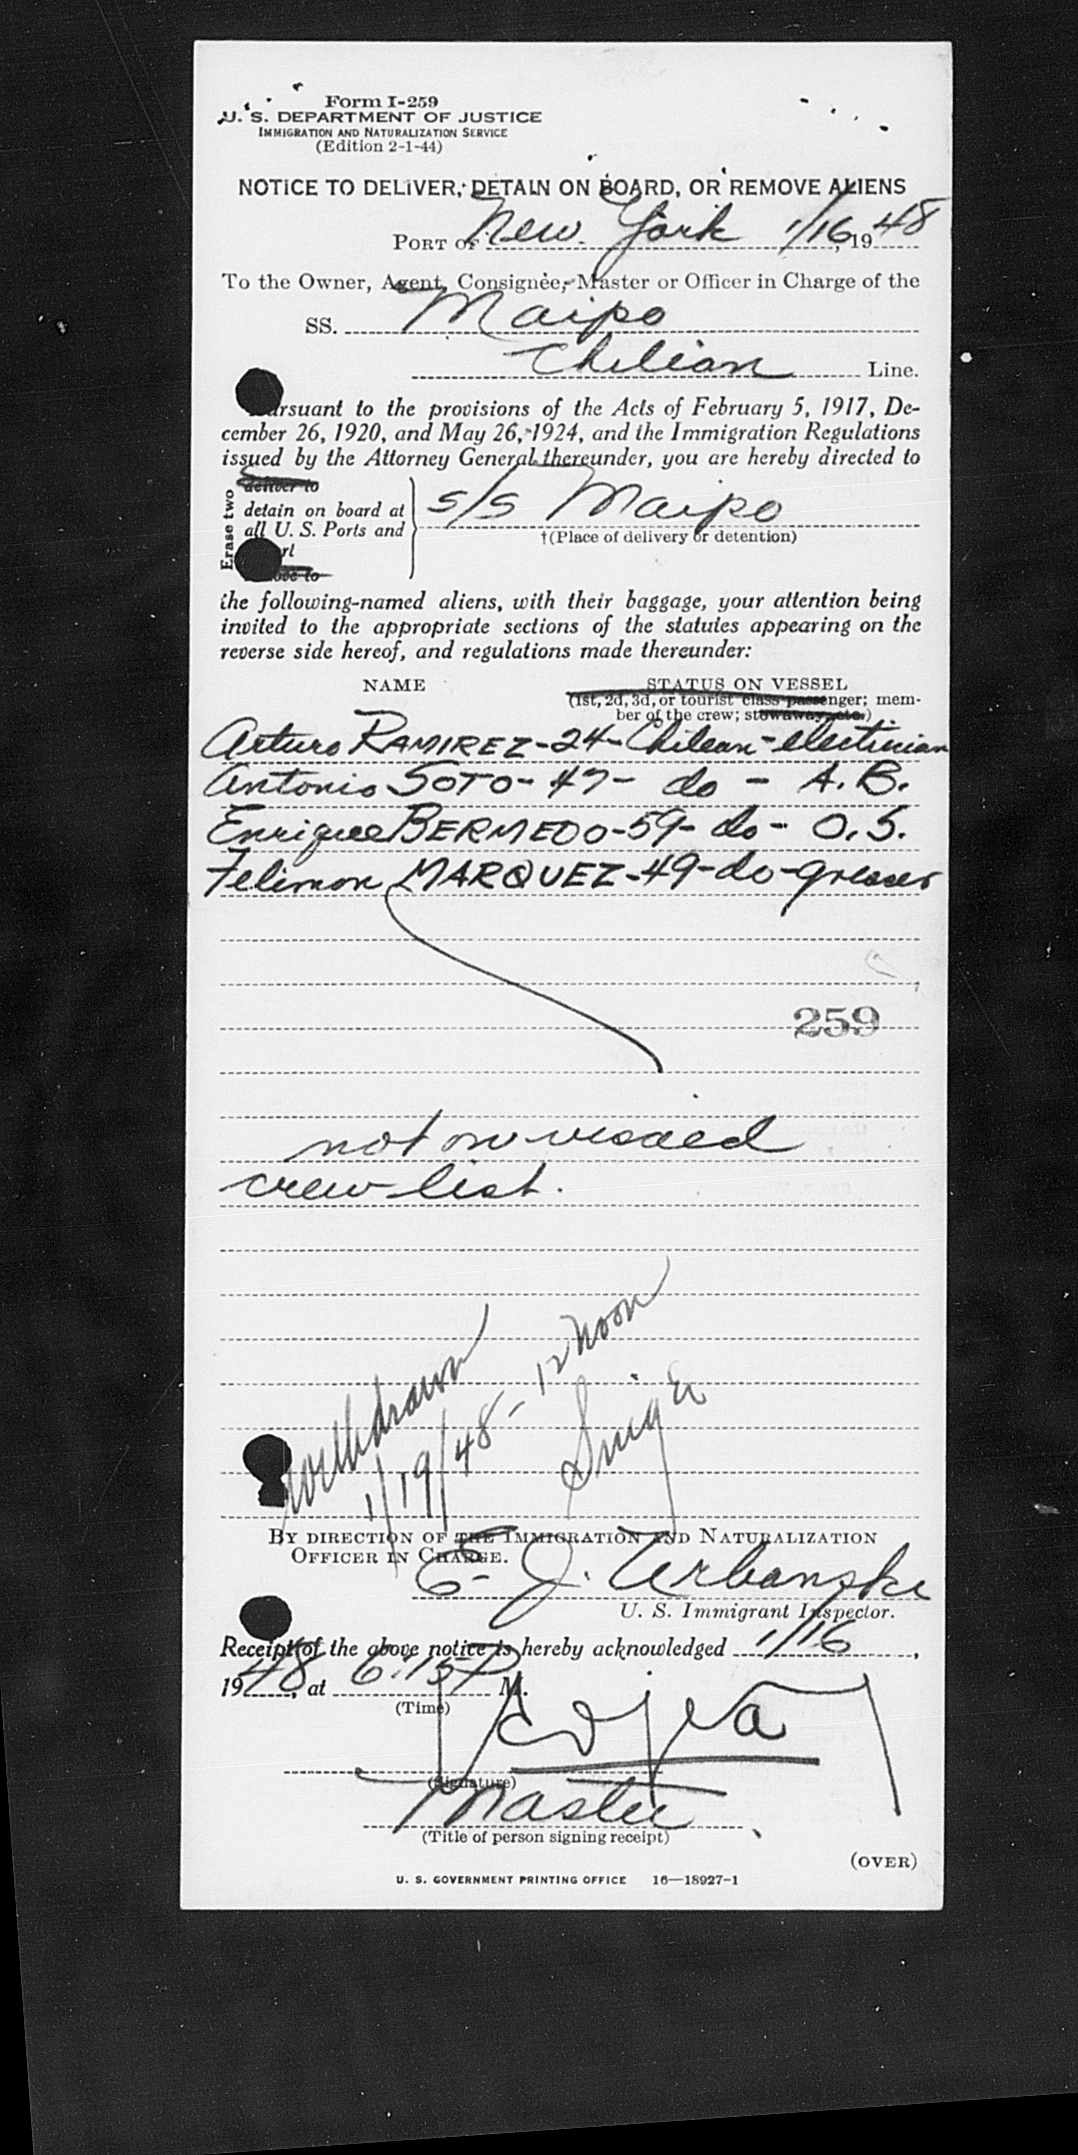 Form I-259
U. S. DEPARTMENT OF JUSTICE
IMMIGRATION AND NATURALIZATION SERVICE
(Edition 2-1-44)
NOTICE TO DELIVER, DETAIN ON BOARD, OR REMOVE ALIENS
PORT OF New York 1/16, 1948
To the Owner, Agent, Consignee, Master or Officer in Charge of the
SS. Maipo
Chilean Line.
rsuant to the provisions of the Acts of February 5, 1917, De-
cember 26, 1920, and May 26, 1924, and the Immigration Regulations
issued by the Attorney General thereunder, you are hereby directed to
Erase two
deliver to
detain on board at
all U. S. Ports and
s/s Maipo
†(Place of delivery or detention)
the following-named aliens, with their baggage, your attention being
invited to the appropriate sections of the statutes appearing on the
reverse side hereof, and regulations made thereunder:
NAME STATUS ON VESSEL
(1st, 2d, 3d, or tourist class passenger; mem-
ber of the crew; stowaway, etc.)
Arturo RAMIREZ-24-Chilean-electrician
Antonio SOTO-47- do - A.B.
Enrique BERMEDO-59-do- O.S.
Felimon MARQUEZ-49-do-greaser
259
not on visaed
crew list.
withdrawn
1/19/48-12 Noon
BY DIRECTION OF THE IMMIGRATION AND NATURALIZATION
OFFICER IN CHARGE.
E. J. Urbanski
U. S. Immigrant Inspector.
Receipt of the above notice is hereby acknowledged 1/16,
1948, at 6:15 P M.
(Time)
(Signature)
Master
(Title of person signing receipt)
(OVER)
U. S. GOVERNMENT PRINTING OFFICE 16—18927-1